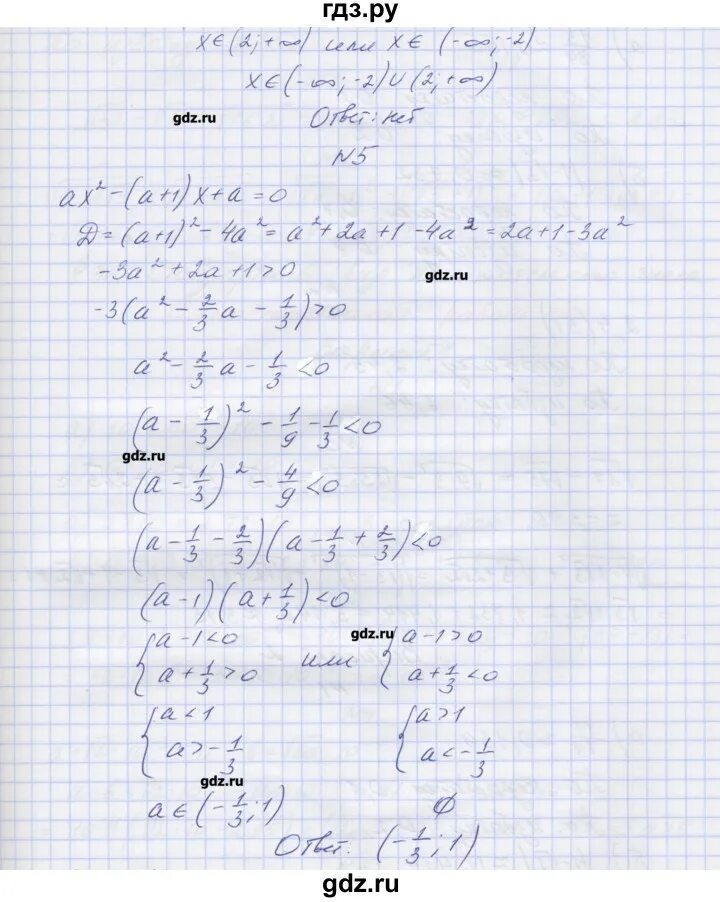 гдз.ру
x∈(2;+∞) или x∈(-∞;-2)
x∈(-∞;-2)∪(2;+∞)
gdz.ru
Ответ: нет
N5
ax²-(a+1)x+a=0
Д=(a+1)²-4a²=a²+2a+1-4a²=2a+1-3a²
-3a²+2a+1>0
gdz.ru
-3(a²-2/3a-1/3)>0
a²-2/3a-1/3<0
(a-1/3)²-1/9-1/3<0
gdz.ru
(a-1/3)²-4/9<0
(a-1/3-2/3)(a-1/3+2/3)<0
(a-1)(a+1/3)<0
gdz.ru
{a-1<0 или {a-1>0
a+1/3>0 a+1/3<0
{a<1 {a>1
a>-1/3 a<-1/3
gdz.ru
a∈(-1/3;1) ∅
Ответ: (-1/3;1)
gdz.ru